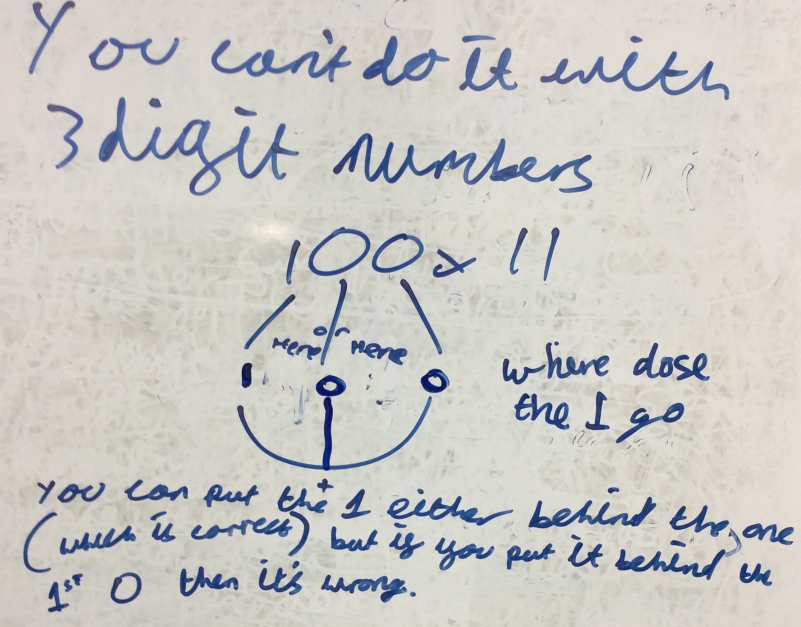 You can't do it with
3 digit numbers
100 x 11
or
Here Here
1 0 0
where dose
the 1 go
+
You can put the 1 either behind the one
(which is correct) but if you put it behind the
1st 0 then it's wrong.